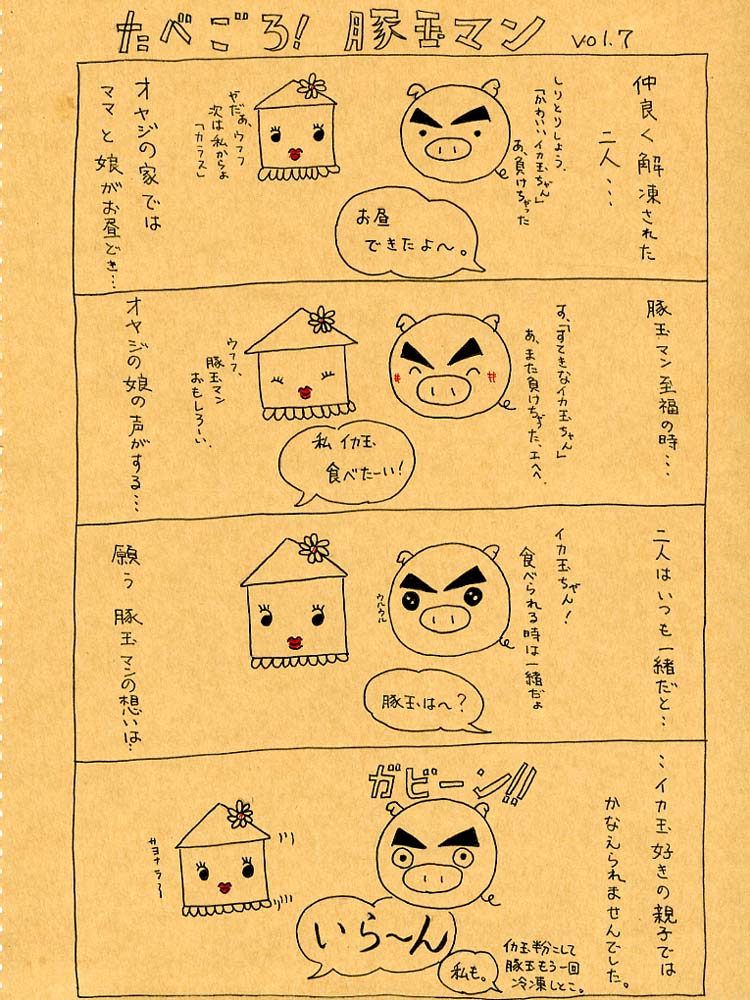 たべごろ! 豚玉マン vol.7
仲良く解凍された
二人・・・
しりとりしょう。
「かわいいイカ玉ちゃん」
あ、負けちゃった
やだぁ、ウフフ
次は私からよ
「カラス」
お昼
できたよ〜。
オヤジの家では
ママと娘がお昼どき・・・
豚玉マン至福の時・・・
す、「すてきなイカ玉ちゃん」
あ、また負けちゃった、エヘヘ。
ウフフ、
豚玉マン
おもしろーい。
私イカ玉
食べたーい!
オヤジの娘の声がする・・・
二人はいつも一緒だと・・
イカ玉ちゃん!
食べられる時は一緒だよ
ウルウル
豚玉は〜?
願う豚玉マンの想いは・・
・・イカ玉好きの親子では
かなえられませんでした。
ガビーン!!
サヨナラ〜
いら〜ん
私も。
イカ玉半分こして
豚玉もう一回
冷凍しとこ。